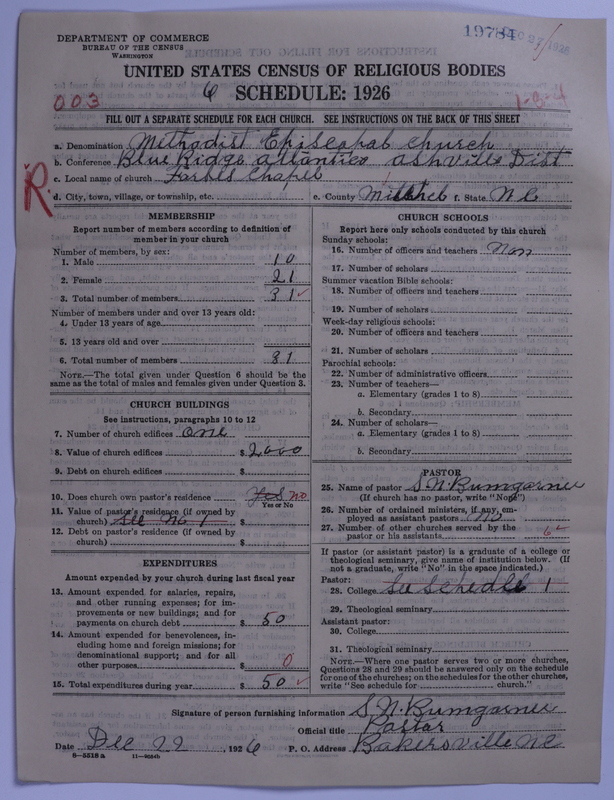 DEPARTMENT OF COMMERCE
BUREAU OF THE CENSUS
WASHINGTON
19784 DEC 27 1926
UNITED STATES CENSUS OF RELIGIOUS BODIES
003 6 SCHEDULE: 1926 1-3-4
FILL OUT A SEPARATE SCHEDULE FOR EACH CHURCH. SEE INSTRUCTIONS ON THE BACK OF THIS SHEET
R
a. Denomination Methodist Episcopal Church
b. Conference Blue Ridge Atlantic Ashville Dist
c. Local name of church Chapel
d. City, town, village, or township, etc. e. County Mitchel f. State N C
MEMBERSHIP
Report number of members according to definition of
member in your church
Number of members, by sex:
1. Male 10
2. Female 21
3. Total number of members 31
Number of members under and over 13 years old:
4. Under 13 years of age
5. 13 years old and over
6. Total number of members 31
NOTE.—The total given under Question 6 should be the
same as the total of males and females given under Question 3.
CHURCH BUILDINGS
See instructions, paragraphs 10 to 12
7. Number of church edifices One
8. Value of church edifices $ 2,000
9. Debt on church edifices $
10. Does church own pastor's residence Yes No
Yes or No
11. Value of pastor's residence (if owned by
church) See No 1 $
12. Debt on pastor's residence (if owned by
church) $
EXPENDITURES
Amount expended by your church during last fiscal year
13. Amount expended for salaries, repairs,
and other running expenses; for im-
provements or new buildings; and for
payments on church debt $ 50
14. Amount expended for benevolences, in-
cluding home and foreign missions; for
denominational support; and for all
other purposes $ 0
15. Total expenditures during year $ 50
CHURCH SCHOOLS
Report here only schools conducted by this church
Sunday schools:
16. Number of officers and teachers Non
17. Number of scholars
Summer vacation Bible schools:
18. Number of officers and teachers
19. Number of scholars
Week-day religious schools:
20. Number of officers and teachers
21. Number of scholars
Parochial schools:
22. Number of administrative officers
23. Number of teachers—
a. Elementary (grades 1 to 8)
b. Secondary
24. Number of scholars—
a. Elementary (grades 1 to 8)
b. Secondary
PASTOR
25. Name of pastor S. N. Bumgarner
(If church has no pastor, write "None")
26. Number of ordained ministers, if any, em-
ployed as assistant pastors No
27. Number of other churches served by the
pastor or his assistants 6
If pastor (or assistant pastor) is a graduate of a college or
theological seminary, give name of institution below. (If
not a graduate, write "No" in the space indicated.)
Pastor:
28. College See Schedle 1
29. Theological seminary
Assistant pastor:
30. College
31. Theological seminary
NOTE.—Where one pastor serves two or more churches,
Questions 28 and 29 should be answered only on the schedule
for one of the churches; on the schedules for the other churches,
write "See schedule for ............ church."
Signature of person furnishing information S. N. Bumgarner
Official title Pastor
Date Dec 22, 1926 P. O. Address Bakersville NC
8—5518 a 11—9554b